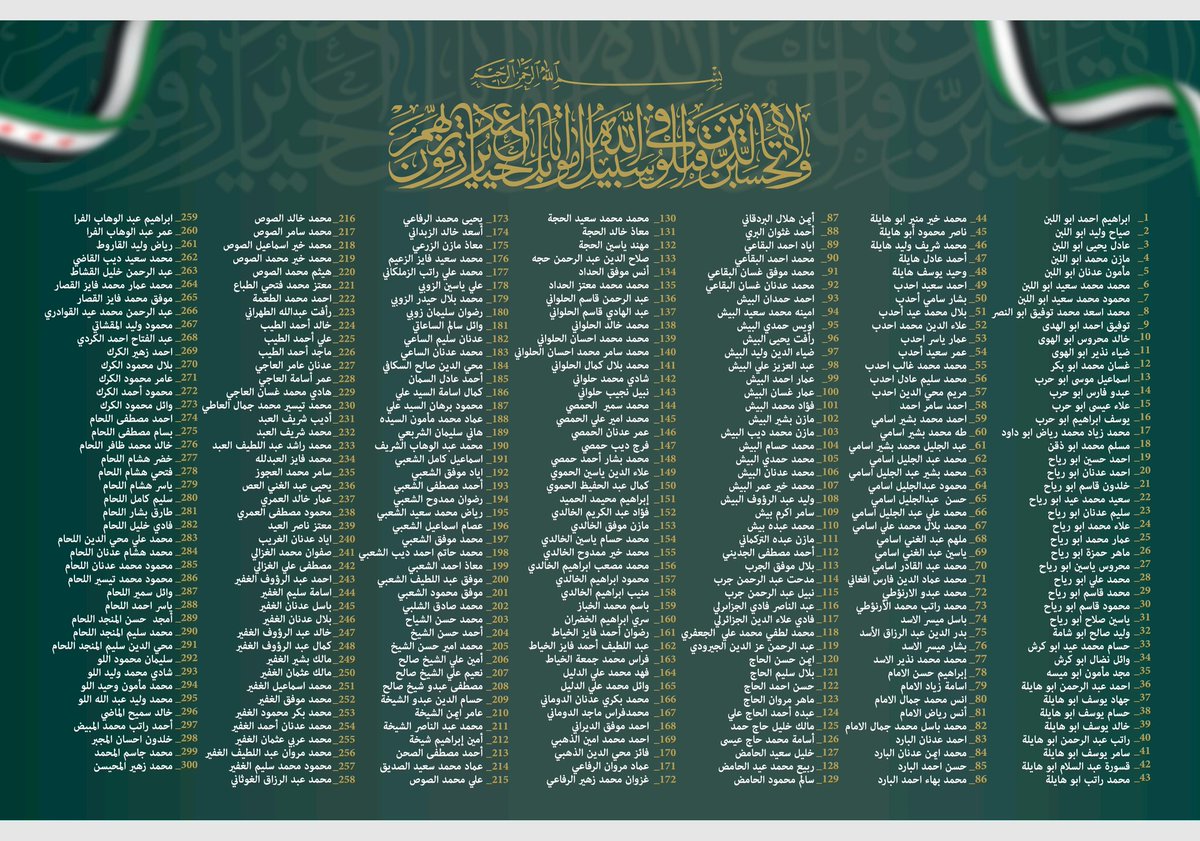 بسم الله الرحمن الرحيم
ولا تحسبن الذين قتلوا في سبيل الله أمواتا بل أحياء عند ربهم يرزقون
1_ ابراهيم احمد ابو اللبن
2_ صياح وليد ابو اللبن
3_ عادل يحيى ابو اللبن
4_ مازن محمد ابو اللبن
5_ مأمون عدنان ابو اللبن
6_ محمد محمد سعيد ابو اللبن
7_ محمود محمد سعيد ابو اللبن
8_ محمد اسعد محمد توفيق ابو النصر
9_ توفيق احمد ابو الهدى
10_ خالد محروس ابو الهوى
11_ ضياء نذير ابو الهوى
12_ غسان محمد ابو بكر
13_ اسماعيل موسى ابو حرب
14_ عبدو فارس ابو حرب
15_ علاء عيسى ابو حرب
16_ يوسف ابراهيم ابو حرب
17_ محمد زياد محمد رياض ابو داود
18_ مسلم محمد ابو ذقن
19_ احمد حسين ابو رياح
20_ احمد عدنان ابو رياح
21_ خلدون قاسم ابو رياح
22_ سعيد محمد عيد ابو رياح
23_ سليم عدنان ابو رياح
24_ علاء محمد ابو رياح
25_ عمار محمد ابو رياح
26_ ماهر حمزة ابو رياح
27_ محروس ياسين ابو رياح
28_ محمد علي ابو رياح
29_ محمد قاسم ابو رياح
30_ محمود قاسم ابو رياح
31_ ياسين صلاح ابو رياح
32_ وليد صالح ابو شامة
33_ حسام محمد عيد ابو كرش
34_ وائل نضال ابو كرش
35_ مجد مأمون ابو ميسه
36_ احمد عبد الرحمن ابو هايلة
37_ جهاد يوسف ابو هايلة
38_ حسام يوسف ابو هايلة
39_ خالد يوسف ابو هايلة
40_ راتب عبد الرحمن ابو هايلة
41_ سامر يوسف ابو هايلة
42_ قسورة عبد السلام ابو هايلة
43_ محمد راتب ابو هايلة
44_ محمد خير منير ابو هايلة
45_ ناصر محمود أبو هايلة
46_ محمد شريف وليد هايلة
47_ أحمد عادل هايلة
48_ وحيد يوسف هايلة
49_ احمد سعيد احدب
50_ بشار سامي أحدب
51_ بلال محمد عيد أحدب
52_ علاء الدين محمد احدب
53_ عمار ياسر احدب
54_ عمر سعيد أحدب
55_ محمد محمد غالب احدب
56_ محمد سليم عادل احدب
57_ مريم محي الدين احدب
58_ احمد سامر احمد
59_ احمد محمد بشير اسامي
60_ طه محمد بشير اسامي
61_ عبد الجليل محمد بشير اسامي
62_ محمد عبد الجليل أسامي
63_ محمد بشير عبد الجليل أسامي
64_ محمود عبدالجليل أسامي
65_ حسن عبدالجليل اسامي
66_ محمد علي عبد الجليل اسامي
67_ محمد بلال محمد علي اسامي
68_ ملهم عبد الغني اسامي
69_ ياسين عبد الغني اسامي
70_ محمد عبد القادر اسامي
71_ محمد عماد الدين فارس افغاني
72_ محمد عبدو الارنؤطي
73_ محمد راتب محمد الأرنؤطي
74_ باسل ميسر الاسد
75_ بدر الدين عبد الرزاق الأسد
76_ بشار ميسر الاسد
77_ محمد محمد نذير الاسد
78_ إبراهيم حسن الامام
79_ اسامة زياد الامام
80_ انس محمد جمال الامام
81_ أنس رياض الامام
82_ محمد باسل محمد جمال الامام
83_ احمد عدنان البارد
84_ محمد ايمن عدنان البارد
85_ حسن احمد البارد
86_ محمد بهاء احمد البارد
87_ أيمن هلال البردقاني
88_ أحمد غثوان البري
89_ اياد احمد البقاعي
90_ محمد احمد البقاعي
91_ محمد موفق غسان البقاعي
92_ محمد عدنان غسان البقاعي
93_ احمد حمدان البيش
94_ امينه محمد سعيد البيش
95_ اويس حمدي البيش
96_ رأفت يحيى البيش
97_ ضياء الدين وليد البيش
98_ عبد العزيز علي البيش
99_ عمار احمد البيش
100_ عمار غسان البيش
101_ فؤاد محمد البيش
102_ مازن بشير البيش
103_ مازن محمد ديب البيش
104_ محمد حسام البيش
105_ محمد حمدي البيش
106_ محمد عدنان البيش
107_ محمد خير عمر البيش
108_ وليد عبد الرؤوف البيش
109_ سامر اكرم بيش
110_ محمد عبده بيش
111_ مازن عبده التركماني
112_ أحمد مصطفى الجديني
113_ بلال موفق الجرب
114_ مدحت عبد الرحمن جرب
115_ نبيل عبد الرحمن جرب
116_ عبد الناصر فادي الجزائرلي
117_ فادي علاء الدين الجزائرلي
118_ محمد لطفي محمد علي الجعفري
119_ عبد الرحمن عز الدين الجيرودي
120_ ايمن حسن الحاج
121_ بلال سليم الحاج
122_ حسن احمد الحاج
123_ ماهر مروان الحاج
124_ عبده أحمد الحاج علي
125_ مالك خليل حاج حمد
126_ أسامة محمد حاج عيسى
127_ خليل سعيد الحامض
128_ ربيع محمد عيد الحامض
129_ سالم محمود الحامض
130_ محمد محمد سعيد الحجة
131_ معاذ خالد الحجة
132_ مهند ياسين الحجة
133_ صلاح الدين عبد الرحمن حجه
134_ أنس موفق الحداد
135_ محمد محمد معتز الحداد
136_ عبد الرحمن قاسم الحلواني
137_ عبد الهادي قاسم الحلواني
138_ محمد خالد الحلواني
139_ محمد احسان الحلواني
140_ محمد سامر محمد احسان الحلواني
141_ محمد بلال كمال الحلواني
142_ شادي محمد حلواني
143_ نبيل نجيب حلواني
144_ محمد سمير الحمصي
145_ محمد امير علي الحمصي
146_ عمر عدنان الحمصي
147_ فرج ديب حمصي
148_ محمد بشار أحمد حمصي
149_ علاء الدين ياسين الحموي
150_ كمال عبد الحفيظ الحموي
151_ إبراهيم محميد الحميد
152_ فؤاد عبد الكريم الخالدي
153_ مازن موفق الخالدي
154_ محمد حسام ياسين الخالدي
155_ محمد خير ممدوح الخالدي
156_ محمد مصعب ابراهيم الخالدي
157_ محمود ابراهيم الخالدي
158_ منيب ابراهيم الخالدي
159_ باسم محمد الخباز
160_ سري ابراهيم الخضران
161_ رضوان أحمد فايز الخياط
162_ عبد اللطيف أحمد فايز الخياط
163_ فراس محمد جمعة الخياط
164_ فهد محمد علي الدليل
165_ وائل محمد علي الدليل
166_ محمد بكري عدنان الدوماني
167_ محمدفراس ماجد الدوماني
168_ احمد موفق الديراني
169_ احمد محمد امين الذهبي
170_ فائز محي الدين الذهبي
171_ عماد مروان الرفاعي
172_ غزوان محمد زهير الرفاعي
173_ يحيى محمد الرفاعي
174_ أسعد خالد الزبداني
175_ معاذ مازن الزرعي
176_ محمد سعيد فايز الزعيم
177_ محمد علي راتب الزملكاني
178_ علي ياسين الزوبي
179_ محمد بلال حيدر الزوبي
180_ رضوان سليمان زوبي
181_ وائل سالم الساعاتي
182_ عدنان سليم الساعي
183_ محمد عدنان الساعي
184_ محي الدين صالح السكافي
185_ أحمد عادل السمان
186_ كمال اسامة السيد علي
187_ محمود برهان السيد علي
188_ عماد محمد مأمون السيده
189_ هاني سليمان الشربعي
190_ محمد عبد الوهاب الشريف
191_ اسماعيل كامل الشعبي
192_ اياد موفق الشعبي
193_ أحمد مصطفى الشعبي
194_ رضوان ممدوح الشعبي
195_ رياض محمد سعيد الشعبي
196_ عصام اسماعيل الشعبي
197_ محمد موفق الشعبي
198_ محمد حاتم احمد ديب الشعبي
199_ معاذ احمد الشعبي
200_ موفق عبد اللطيف الشعبي
201_ موفق محمود الشعبي
202_ محمد صادق الشلبي
203_ محمد حسن الشياح
204_ أحمد حسن الشيخ
205_ محمد امير حسن الشيخ
206_ أمين علي الشيخ صالح
207_ نعيم علي الشيخ صالح
208_ مصطفى عبدو شيخ صالح
209_ حسام الدين عبدو الشيخة
210_ عامر إيمن الشيخة
211_ محمد عبد الناصر الشيخة
212_ أمين إبراهيم شيخة
213_ أحمد مصطفى الصحن
214_ عماد محمد سعيد الصديق
215_ علي محمد الصوص
216_ محمد خالد الصوص
217_ محمد سامر الصوص
218_ محمد خير اسماعيل الصوص
219_ محمد خير محمد الصوص
220_ هيثم محمد الصوص
221_ معتز محمد فتحي الطباع
222_ احمد محمد الطعمة
223_ رأفت عبدالله الطهراني
224_ خالد أحمد الطيب
225_ علي أحمد الطيب
226_ ماجد أحمد الطيب
227_ عدنان عامر العاجي
228_ عمر أسامة العاجي
229_ هادي محمد غسان العاجي
230_ محمد تيسير محمد جمال العاطي
231_ أديب شريف العبد
232_ محمد شريف العبد
233_ محمد راشد عبد اللطيف العبد
234_ محمد فايز العبدلله
235_ سامر محمد العجوز
236_ يحيى عبد الغني العص
237_ عمار خالد العمري
238_ محمود مصطفى العمري
239_ معتز ناصر العيد
240_ اياد عدنان الغريب
241_ صفوان محمد الغزالي
242_ مصطفى علي الغزالي
243_ احمد عبد الرؤوف الغفير
244_ اسامة سليم الغفير
245_ باسل عدنان الغفير
246_ بلال عدنان الغفير
247_ خالد عبد الرؤوف الغفير
248_ كمال عبد الرؤوف الغفير
249_ مالك بشير الغفير
250_ مالك عثمان الغفير
251_ محمد اسماعيل الغفير
252_ محمد موفق الغفير
253_ محمد بكر محمود الغفير
254_ محمد عدنان أحمد الغفير
255_ محمد عربي عثمان الغفير
256_ محمد مروان عبد اللطيف الغفير
257_ محمود محمد سليم الغفير
258_ محمد عبد الرزاق الغوثاني
259_ ابراهيم عبد الوهاب الفرا
260_ عمر عبد الوهاب الفرا
261_ رياض وليد القاروط
262_ محمد سعيد ديب القاضي
263_ عبد الرحمن خليل القشاط
264_ محمد عمار محمد فايز القصار
265_ موفق محمد فايز القصار
266_ عبد الرحمن محمد عيد القوادري
267_ محمود وليد المقشاتي
268_ عبد الفتاح احمد الكردي
269_ احمد زهير الكرك
270_ بلال محمود الكرك
271_ عامر محمود الكرك
272_ محمود أحمد الكرك
273_ وائل محمود الكرك
274_ احمد مصطفى اللحام
275_ بسام مصطفى اللحام
276_ خالد محمد ظافر اللحام
277_ خضر هشام اللحام
278_ فتحي هشام اللحام
279_ ياسر هشام اللحام
280_ سليم كامل اللحام
281_ طارق بشار اللحام
282_ فادي خليل اللحام
283_ محمد علي محي الدين اللحام
284_ محمد هشام عدنان اللحام
285_ محمود محمد عدنان اللحام
286_ محمود محمد تيسير اللحام
287_ وائل سمير اللحام
288_ ياسر احمد اللحام
289_ أمجد حسن المنجد اللحام
290_ محمد سليم المنجد اللحام
291_ محي الدين سليم المنجد اللحام
292_ سليمان محمود اللو
293_ شادي محمد وليد اللو
294_ محمد مأمون وحيد اللو
295_ محمد وليد عبد الله اللو
296_ خالد سميح الماضي
297_ أحمد راتب محمد المبيض
298_ خلدون احسان المجبر
299_ محمد جاسم المحمد
300_ محمد زهير المحيسن